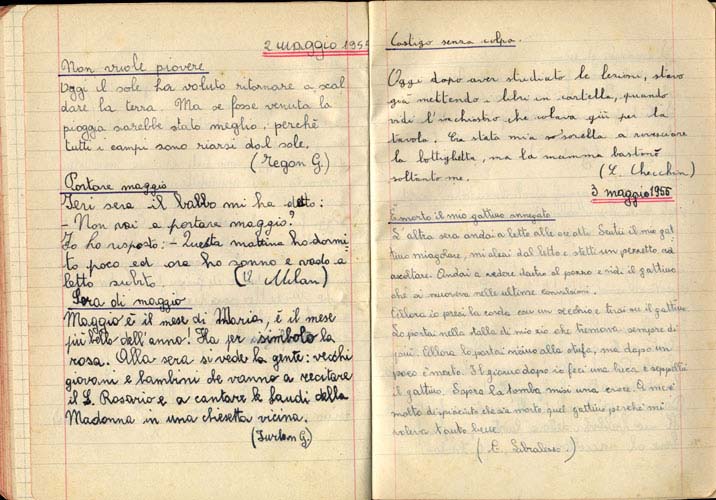 2 maggio 1955
Non vuole piovere
Oggi il sole ha voluto ritornare a scal
dare la terra. Ma se fosse venuta la
pioggia sarebbe stato meglio, perchè
tutti i campi sono riarsi dal sole.
(Regon G.)
Portare maggio
Ieri sera il babbo mi ha detto:
- Non vai a portare maggio?
Io ho risposto: - Questa mattina ho dormi
to poco ed ora ho sonno e vado a
letto subito. (Milan)
Sera di maggio
Maggio è il mese di Maria, è il mese
più bello dell'anno! Ha per simbolo la
rosa. Alla sera si vede la gente: vecchi
giovani e bambini che vanno a recitare
il S. Rosario e a cantare le laudi della
Madonna in una chiesetta vicina.
(Furlan G.)
Castigo senza colpa.
Oggi dopo aver studiato le lezioni, stavo
già mettendo i libri in cartella, quando
vidi l'inchiostro che colava giù per la
tavola. Era stata mia sorella a rovesciare
la bottiglietta, ma la mamma bastonò
soltanto me. (L. Checchin)
3 maggio 1955
È morto il mio gattino annegato
L'altra sera andai a letto alle ore otto. Sentii il mio gat
tino miagolare, mi alzai dal letto e stetti un pezzetto ad
ascoltare. Andai a vedere dietro al pozzo e vidi il gattino
che si muoveva nelle ultime convulsioni.
Allora io presi la corda con un secchio e tirai su il gattino.
Lo portai nella stalla di mio zio che tremava sempre di
più. Allora lo portai vicino alla stufa, ma dopo un
poco è morto. Il giorno dopo io feci una buca e seppellii
il gattino. Sopra la tomba misi una croce. A me è
molto dispiaciuto che sia morto quel gattino perchè mi
voleva tanto bene.
(E. Libralesso.)